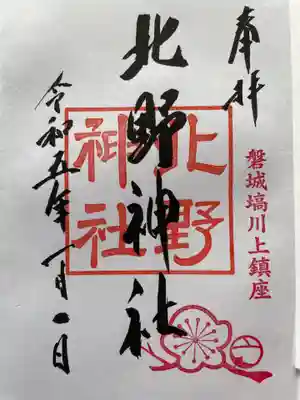 奉拝
磐城塙川上鎮座
北野神社
北野神社
令和五年一月一日